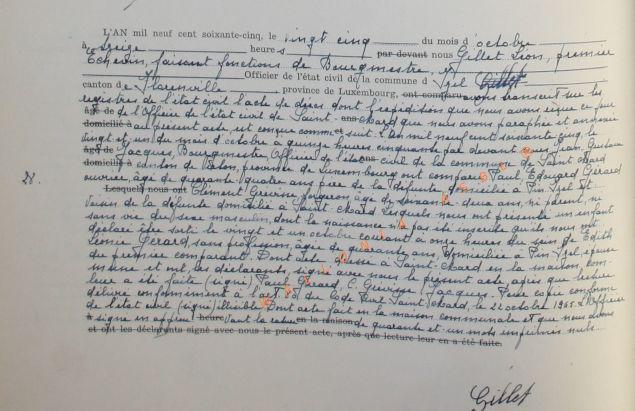 L'AN mil neuf cent soixante-cinq, le vingt cinq du mois d'octobre
à seize heures par devant nous Gillet Léon, premier
Echevin, faisant fonctions de Bourgmestre, et
Officier de l'état civil de la commune d'Izel Gillet
canton de Florenville, province de Luxembourg, ont comparu avons transcrit sur les
registres de l'état civil l'acte de décès dont l'expédition que nous avons reçue ce jour
âgé de de l'Officier de l'état civil de Saint-ans Mard que nous avons paraphé et annexé
domicilié à au présent acte est conçue comme et suit: L'an mil neuf cent soixante cinq, le
vingt et un du mois d'octobre à quinze heures cinquante par devant nous Jean, Gustave
âgé de Jacques, Bourgmestre Officier de l'état ans civil de la commune de Saint Mard
domicilié à canton de Virton, province de Luxembourg ont comparu Paul Edouard Gérard
ouvrier, âgé de quarante quatre ans père de la défunte domicilié à Pin Izel et
28. Lesquels nous ont Clément Gevrisse forgeron, âgé de soixante deux ans, ni parent, ni
voisin de la défunte domicilié à Saint-Mard lesquels nous ont présenté un enfant
sans vie du sexe masculin, dont la naissance n'a pas été inscrite qu'ils nous ont
déclaré être sorti le vingt et un octobre courant à onze heures du sein de Edith
Léonie Gérard, sans profession, âgée de quarante ans, domiciliée à Pin Izel, épouse
du premier comparant. Dont acte dressé à Saint-Mard en la maison com-
mune et ont, les déclarants, signé avec nous le présent acte, après que lecture
leur a été faite (signé) Paul Gérard, C. Gevrisse, J. Jacques. Pour copie conforme
délivré conformément à l'art 80 du Code Civil Saint Mard, le 22 octobre 1965. L'Officier
de l'état civil (signé) illisible. Dont acte fait en la maison communale et que nous avons
à signé en approu heure vant la rature en la maison de quarante et un mots imprimés nuls.
et ont les déclarants signé avec nous le présent acte, après que lecture leur en a été faite.
Gillet